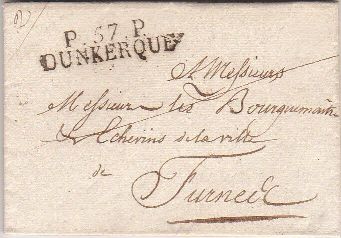 P. 57. P.
DUNKERQUE
A Messieurs
Messieurs les Bourguemaitre
& Echevins de la ville
de
Furnes